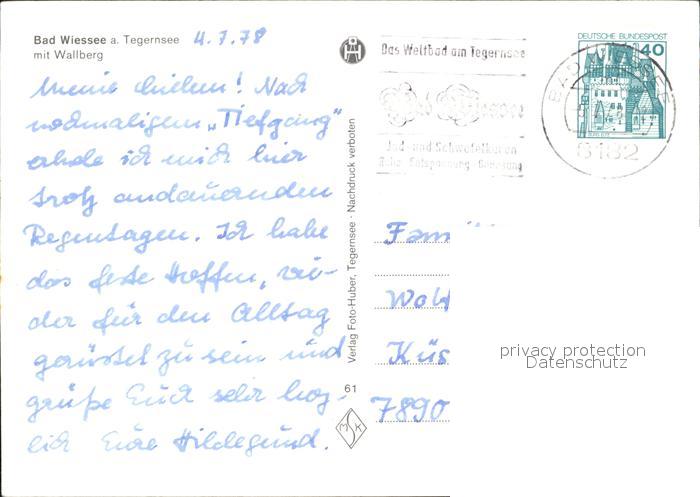 Bad Wiessee a. Tegernsee
mit Wallberg
4.7.78
Meine Lieben! Nach
nochmaligem „Tiefgang"
erhole ich mich hier
trotz andauernden
Regentagen. Ich habe
das feste Hoffen, wie-
der für den Alltag
gerüstet zu sein und
grüße Euch sehr herz-
lich Eure Hildegund.
Verlag Foto-Huber, Tegernsee · Nachdruck verboten
61
MSK
Das Weltbad am Tegernsee
Bad Wiessee
Jod- und Schwefelkuren
Ruhe Entspannung Genesung
DEUTSCHE BUNDESPOST
40
BAD WIESSEE
8182
Fami
Wal
Küs
7890
privacy protection
Datenschutz